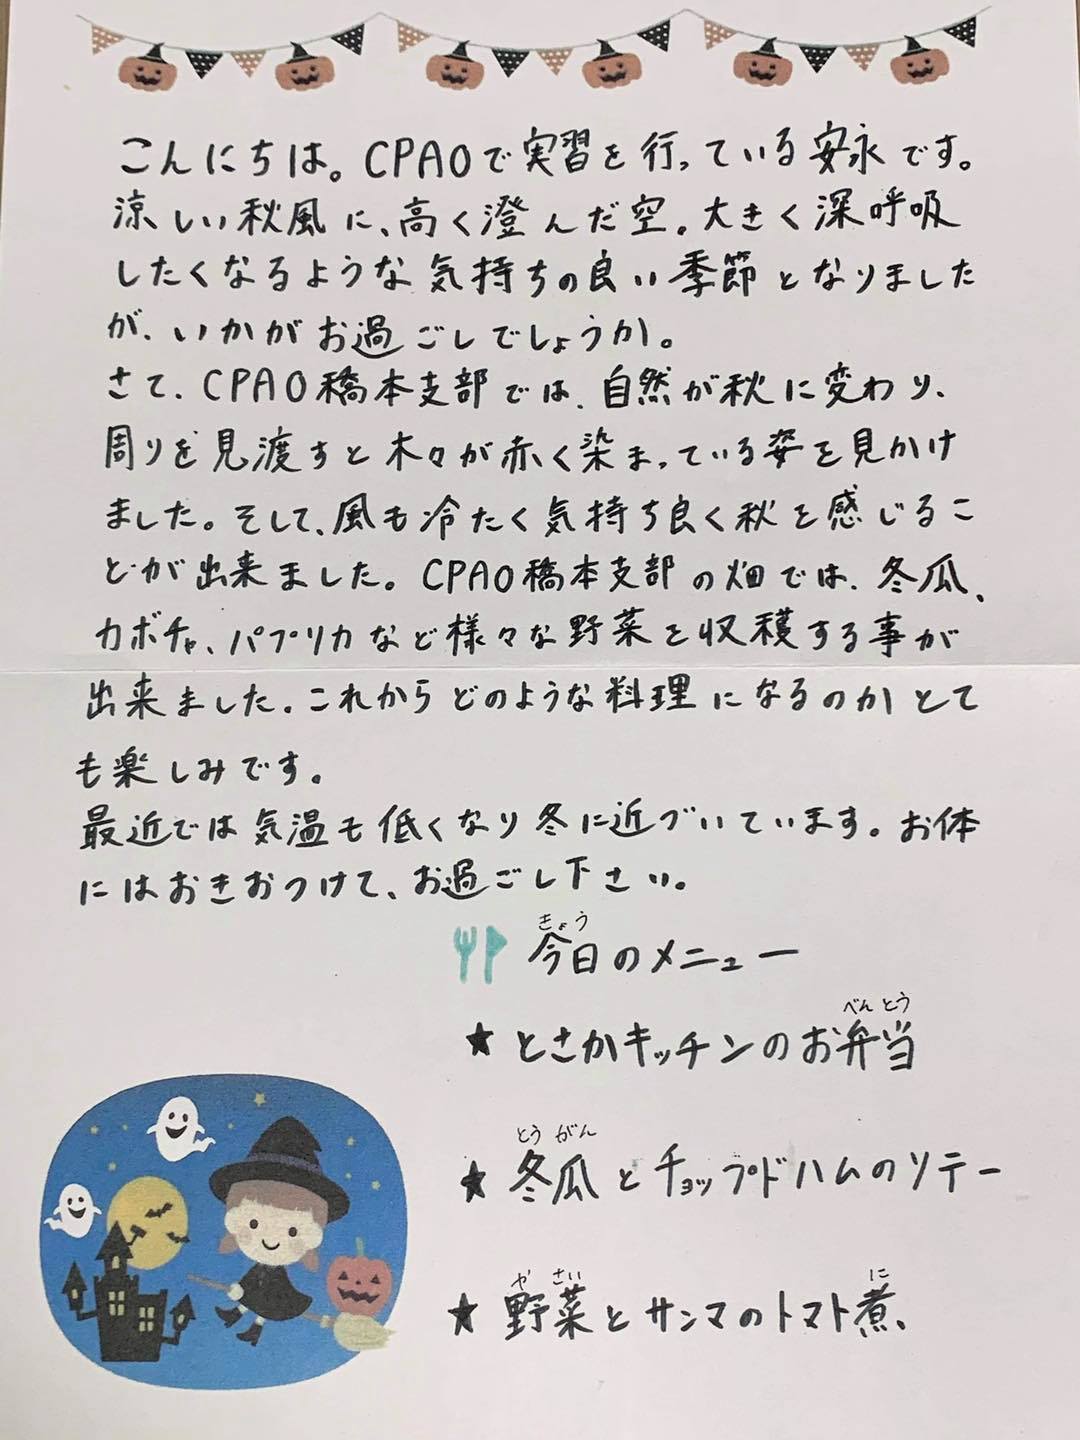 こんにちは。CPAOで実習を行っている安永です。
涼しい秋風に、高く澄んだ空。大きく深呼吸
したくなるような気持ちの良い季節となりました
が、いかがお過ごしでしょうか。
さて、CPAO橋本支部では、自然が秋に変わり、
周りを見渡すと木々が赤く染まっている姿を見かけ
ました。そして、風も冷たく気持ち良く秋を感じるこ
とが出来ました。CPAO橋本支部の畑では、冬瓜、
カボチャ、パプリカなど様々な野菜を収穫する事が
出来ました。これからどのような料理になるのかとて
も楽しみです。
最近では気温も低くなり冬に近づいています。お体
にはおきおつけて、お過ごし下さい。
きょう
今日のメニュー
べんとう
★とさかキッチンのお弁当
とうがん
★冬瓜とチョップドハムのソテー
やさい に
★野菜とサンマのトマト煮、